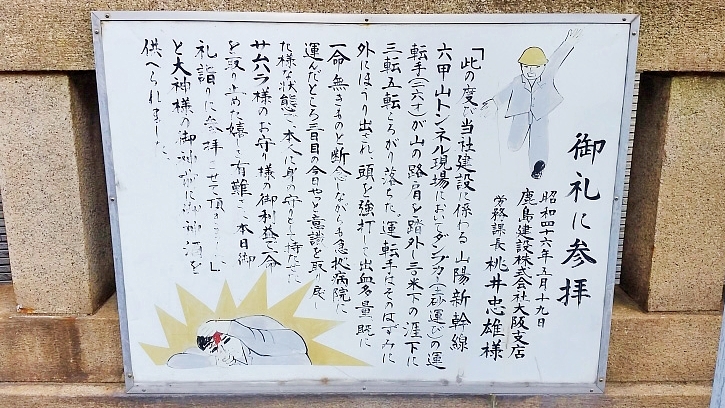 御礼に参拝
昭和四十六年五月十九日
鹿島建設株式会社大阪支店
労務課長 桃井忠雄様
「此の度が当社建設に係わる山陽新幹線
六甲山トンネル現場においてダンプカー(土砂運び)の運
転手(二六才)が山の路肩を踏外し三〇米下の涯下に
三転五転ころがり落ちた。運転手はそのはずみに
外にほうり出され頭を強打して出血多量既に
一命無きものと断念しながらも急拠病院に
運んだところ三日目の今日やっと意識を取り戻し
た様な状態で、本人に身の守りとして持たせた
サムハラ様のお守り様の御利益で命
を取り止めた嬉しく有難さ、本日御
礼詣りに参拝させて頂きました」
と大神様の御神前に御神酒を
供へられました。